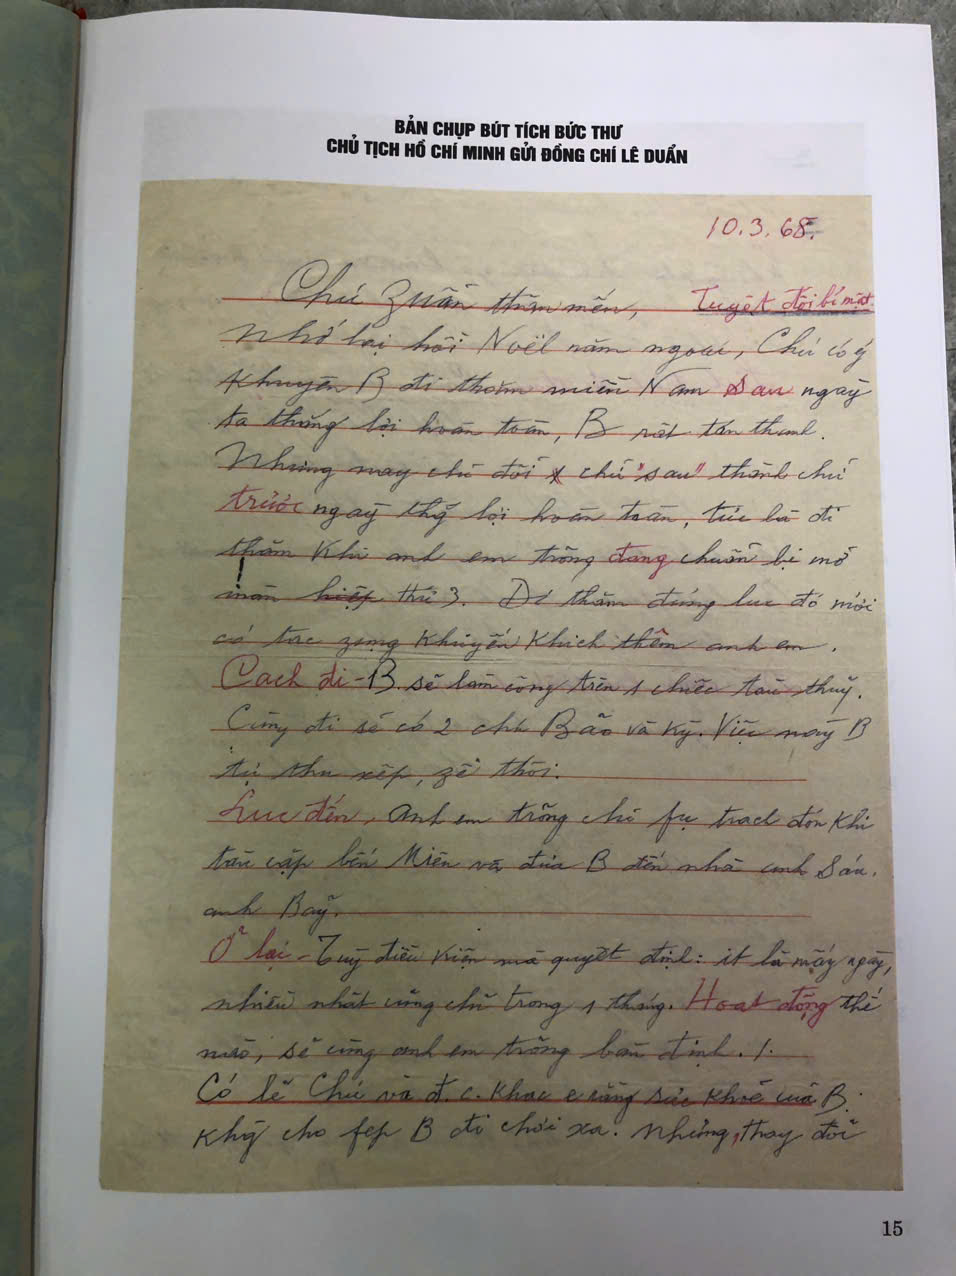 BẢN CHỤP BÚT TÍCH BỨC THƯ
CHỦ TỊCH HỒ CHÍ MINH GỬI ĐỒNG CHÍ LÊ DUẨN
10.3.68.
Chú Zuẩn thân mến, Tuyệt đối bí mật
Nhớ lại hồi Noël năm ngoái, Chú có ý
khuyên B đi thăm miền Nam sau ngày
ta thắng lợi hoàn toàn, B rất tán thành.
Nhưng nay chú đổi chữ "sau" thành chữ
trước ngày thắng lợi hoàn toàn, tức là đi
thăm khi anh em trong đang chuẩn bị mở
màn hiệp thứ 3. Đi thăm đúng lúc đó mới
có tác zụng khuyến khích thêm anh em.
Cách đi - B sẽ làm công trên 1 chiếc tàu thuỷ.
Cùng đi sẽ có 2 chú Bảo và Kỳ. Việc này B
tự thu xếp, zễ thôi.
Lúc đến, anh em trong chỉ fụ trách đón khi
tàu cặp bến Miên và đưa B đến nhà anh Sáu,
anh Bảy.
Ở lại - Tuỳ điều kiện mà quyết định: ít là mấy ngày,
nhiều nhất cũng chỉ trong 1 tháng. Hoạt động thế
nào, sẽ cùng anh em trong bàn định.
Có lẽ Chú và đ.c. khác e rằng sức khoẻ của B.
không cho fép B đi chơi xa. Nhưng, thay đổi
15